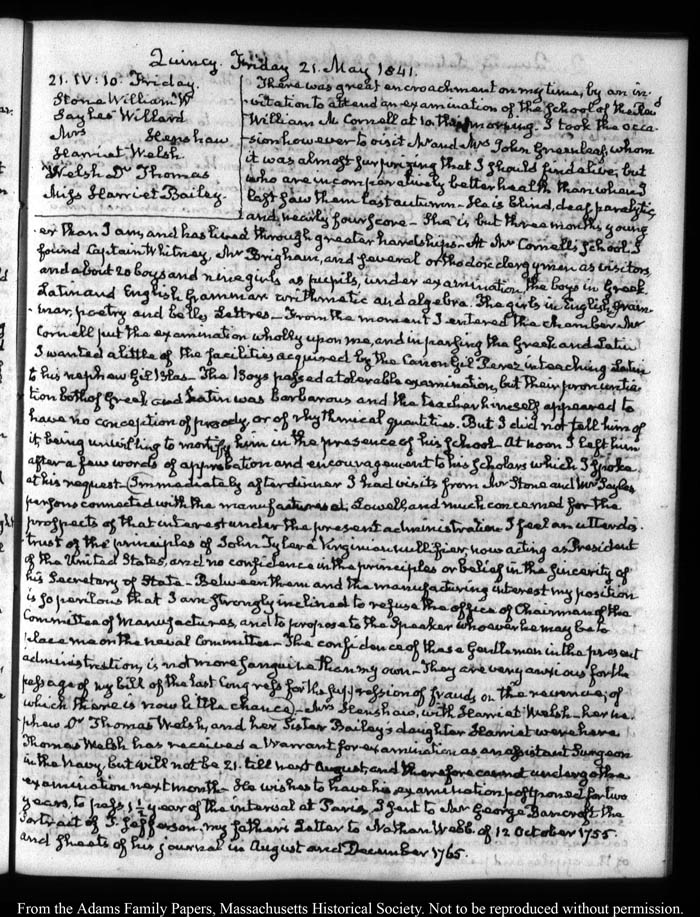 Quincy. Friday 21. May 1841.
21. IV: 10: Friday.
Stone William W
Sayles Willard
Mrs Henshaw
Harriet Welsh
Welsh Dr Thomas
Miss Harriet Bailey.
There was great encroachment on my time, by an in-
vitation to attend an examination of the School of the Revd
William M Cornell at 10. this morning. I took the occa-
sion however to visit Mr and Mrs John Greenleaf, whom
it was almost surprizing that I should find alive; but
who are in comparatively better health than when I
last saw them last autumn. He is blind, deaf, paralytic,
and nearly fourscore. She is but three months young
er than I am, and has lived through greater hardships. At Mr Cornell's School I
found Captain Whitney, Mr Brigham, and several orthodox clergymen as visitors,
and about 20 boys and nine girls as pupils, under examination, the boys in Greek
Latin and English Grammar arithmetic and algebra. The girls in English, gram-
mar, poetry and belles Lettres. From the moment I entered the chamber Mr
Cornell put the examination wholly upon me, and in parsing the Greek and Latin
I wanted a little of the facilities acquired by the Canon Gil Perez in teaching Latin
to his nephew Gil Blas. The Boys passed a tolerable examination, but their pronuntia-
tion both of Greek and Latin was barbarous and the teacher himself appeared to
have no conception of prosody, or of rhythmical quantities. But I did not tell him of
it, being unwilling to mortify him in the presence of his School. At noon I left him
after a few words of approbation and encouragement to his scholars which I spoke
at his request. Immediately after dinner I had visits from Mr Stone and Mr Sayles
persons connected with the manufactures at Lowell, and much concerned for the
prospects of that interest under the present administration. I feel an utter dis-
trust of the principles of John Tyler a Virginian nullifier, now acting as President
of the United States, and no confidence in the principles or belief in the sincerity of
his Secretary of State. Between them and the manufacturing interest my position
is so perilous that I am strongly inclined to refuse the office of Chairman of the
Committee of Manufactures, and to propose to the Speaker whoever he may be to
place me on the naval Committee. The confidence of these Gentlemen in the present
administration, is not more sanguine than my own. They are very anxious for the
passage of my bill of the last Congress for the suppression of frauds on the revenue; of
which there is now little chance. Mrs Henshaw, with Harriet Welsh her ne-
phew Dr Thomas Welsh, and her Sister Bailey's daughter Harriet were here
Thomas Welsh has received a Warrant for examination as an assistant Surgeon
in the Navy, but will not be 21. till next August, and therefore cannot undergo the
examination next month. He wishes to have his examination postponed for two
years, to pass 1½ year of the interval at Paris. I sent to Mr George Bancroft the
Portrait of T. Jefferson, my father's Letter to Nathan Webb. of 12 October 1755.
and sheets of his journal in August and December 1765.
From the Adams Family Papers, Massachusetts Historical Society. Not to be reproduced without permission.